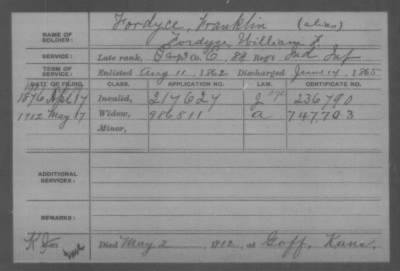 Fordyce, Franklin (alias)
NAME OF SOLDIER: Fordyce, William F.
SERVICE: Late rank, Co. 88 Reg't Ind Inf
TERM OF SERVICE: Enlisted Aug 11, 1862 Discharged June 14, 1865
DATE OF FILING. CLASS. APPLICATION NO. LAW. CERTIFICATE NO.
1876 Apl 17 Invalid, 217627 236790
1912 May 17 Widow, 986511 a 747703
Minor,
ADDITIONAL SERVICES:
REMARKS:
Died May 2, 1912, at Goff, Kans.